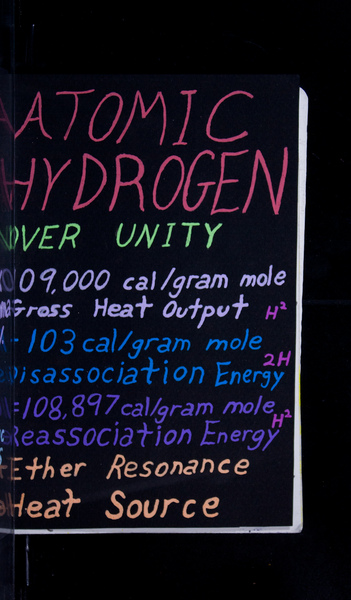 ATOMIC
HYDROGEN
OVER UNITY
109,000 cal/gram mole
Gross Heat Output H²
-103 cal/gram mole
Disassociation Energy 2H
=108,897 cal/gram mole
Reassociation Energy H²
Ether Resonance
Heat Source